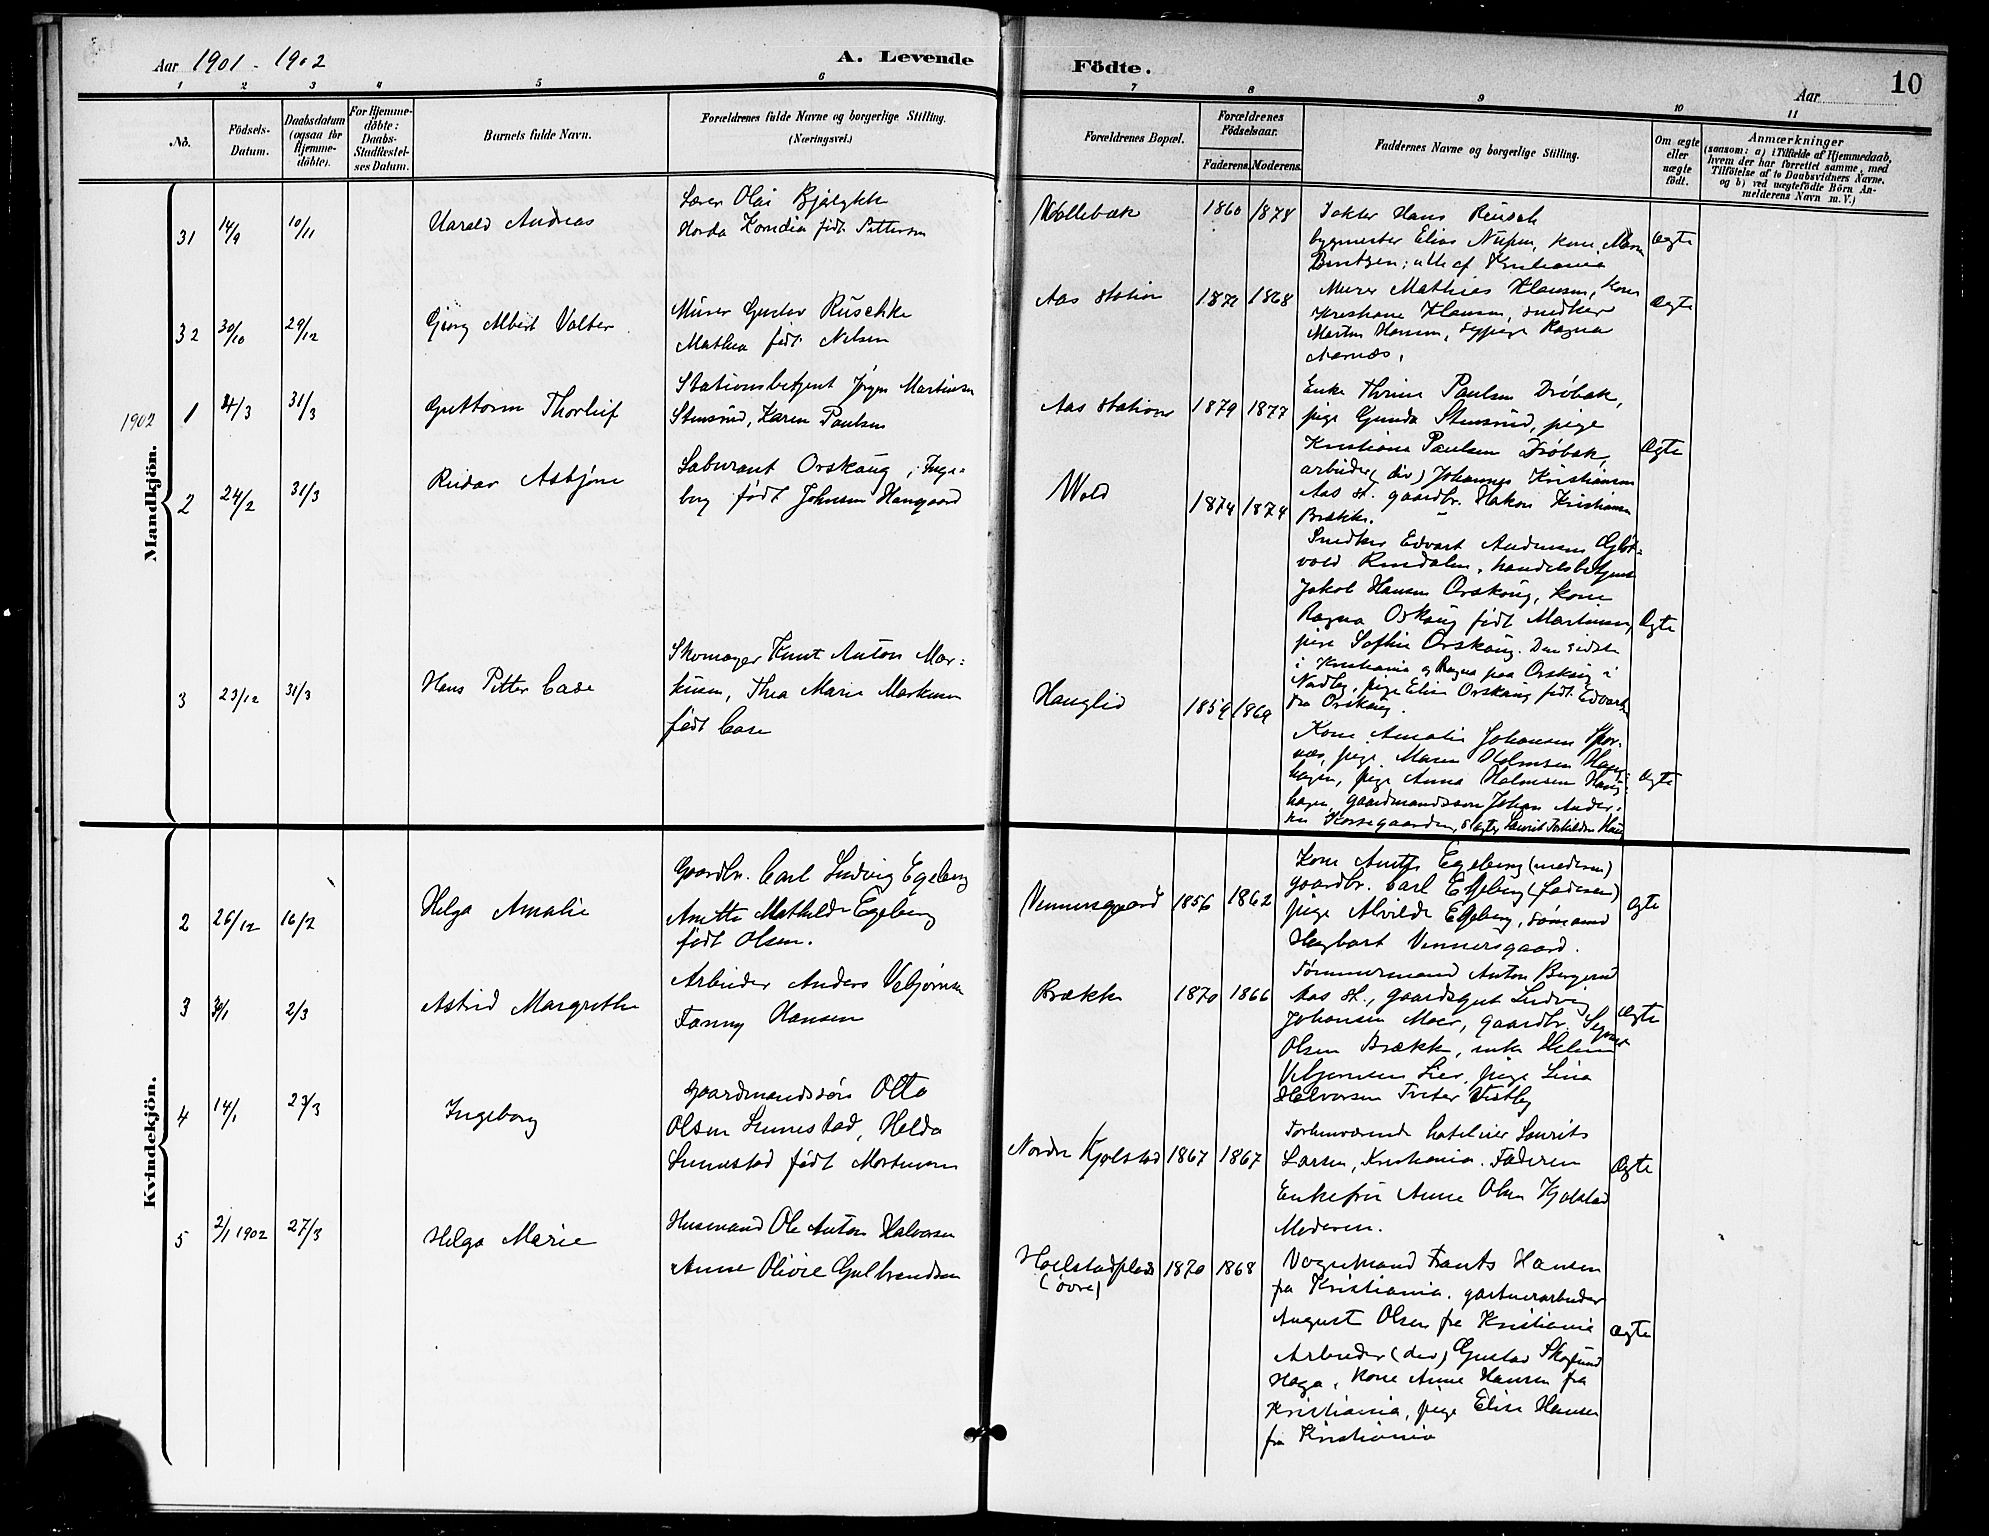 Aar 1901 - 1902
A. Levende Födte.
Aar
10
1 2 3 4 5 6 7 8 9 10 11
No.
Födsels-Datum.
Daabsdatum (ogsaa for Hjemme-döbte).
For Hjemme-döbte: Daabs-Stadfæstel-ses Datum.
Barnets fulde Navn.
Forældrenes fulde Navne og borgerlige Stilling.
(Næringsvei.)
Forældrenes Bopæl.
Forældrenes Födselsaar.
Faderens. Moderens.
Faddernes Navne og borgerlige Stilling.
Om ægte eller uægte födt.
Anmærkninger
(saasom: a) i Tilfælde af Hjemmedaab,
hvem der har forrettet samme, med
Tilföielse af to Daabsvidners Navne,
og b) ved uægtefödte Börn An-
melderens Navn m. V.)
Mandkjön.
31 14/9 10/11 Harald Andreas
Lærer Olai
Horda født Pettersen
1860 1878
Dokter Hans Reusch
bygmester Elias kone
Berntzen; alle af Kristiania
Ægte
32 30/10 29/12 Georg Albert Valter
Murer Gustav Ruschke
Mathea født Nelsen
Aas station
1868
Murer Mathias Hansen, kone
Kristiane Hansen, snedker
Martin Hansen, sypige Ragna
Aarnæs.
Ægte
1902
1 4/3 31/3 Guttorm Thorleif
Stationsbetjent Jørgen Martinsen
Stensrud, Karen Paulsen
Aas station 1879 1877
Enke Thrine Paulsen Drøbak,
pige Gunda Stensrud, pige
Kristiane Paulsen Drøbak,
arbeider (div) Johannes Kristiansen
Aas st. gaardbr. Hakon Kristiansen
Brække.
Ægte
2 24/2 31/3 Reidar Asbjørn
Laburant Orskaug, Inge-
borg født Johnsen Haugaard
Wold
1874 1874
Snedker Edvart Andersen
vold handelsbetjent
Jakob Hansen Orskaug, kone
Ragna Orskaug født Martinsen,
pige Sofhie Orskaug. Den sidste
i Kristiania og Ragna paa Orskaug i
Nadby, pige Elise Orskaug født Edvart
fra Orskaug.
Ægte
3 23/12 31/3 Hans Petter Case
Skomager Knut Anton Mar-
kusen, Thea Marie Markusen
født Case
Hauglid
1859 1869
Kone Amalie Johansen Spor-
næs, pige Maren Holmsen Haug-
hagen, pige Anna Holmsen Haug-
hagen, gaardmandssøn Johan Ander-
sen Korsegaarden,
Ægte
Kvindekjön.
2 26/12 16/2 Helga Amalie
Gaardbr. Carl Ludvig Egeberg
Anette Mathilde Egeberg
født Olsen.
Vennersgaard 1856 1862
Kone Anette Egeberg (moderen)
gaardbr. Carl Egeberg (faderen)
pige Alvilde Egeberg, sømand
Hagbart Vennersgaard.
Ægte
3 2/3 Astrid Margrethe
Arbeider Anders Vebjørnsen
Fanny Hansen
Brække 1870 1866
Tømmermand Anton Bergerud
Aas st., gaardsgut Ludvig
Johansen Moer, gaardbr.
Olsen Brække, enke Helene
Vebjørnsen Lier, pige Lina
Halvorsen Tveter Vestby
Ægte
4 14/1 23/3 Ingeborg
gaardmandssøn Otto
Olsen Sunnestad, Helda
Sunnestad født Mortensen
Nordre Kjølstad 1867 1867
Forhenværende hotelier Laurits
Larsen, Kristiania. Faderen
Enkefru Anne Olsen Kjølstad
Moderen.
Ægte
5 2/1 1902 27/3 Helga Marie
Husmand Ole Anton Halvorsen
Anne Olivie Gulbrandsen
Holstadplads (øvre) 1870 1868
Vognmand Frants Hansen
fra Kristiania. gartnerarbeider
August Olsen fra Kristiania
Arbeider (div) Gustav Skoglund
Haga, kone Anne Hansen fra
Kristiania, pige Elise Hansen
fra Kristiania
Ægte